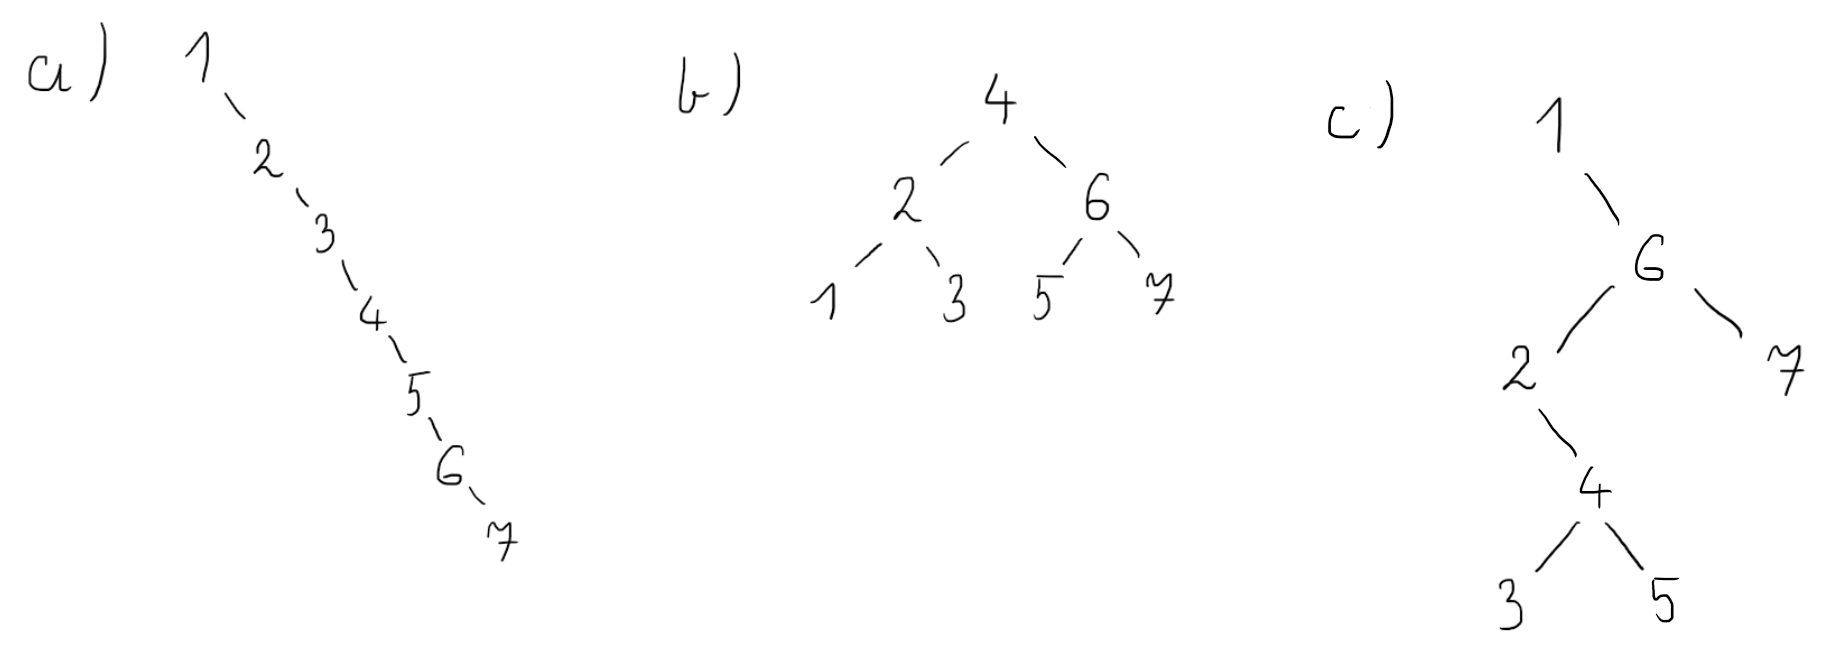 a) 1
2
3
4
5
6
7
b) 4
2 6
1 3 5 7
c) 1
6
2 7
4
3 5